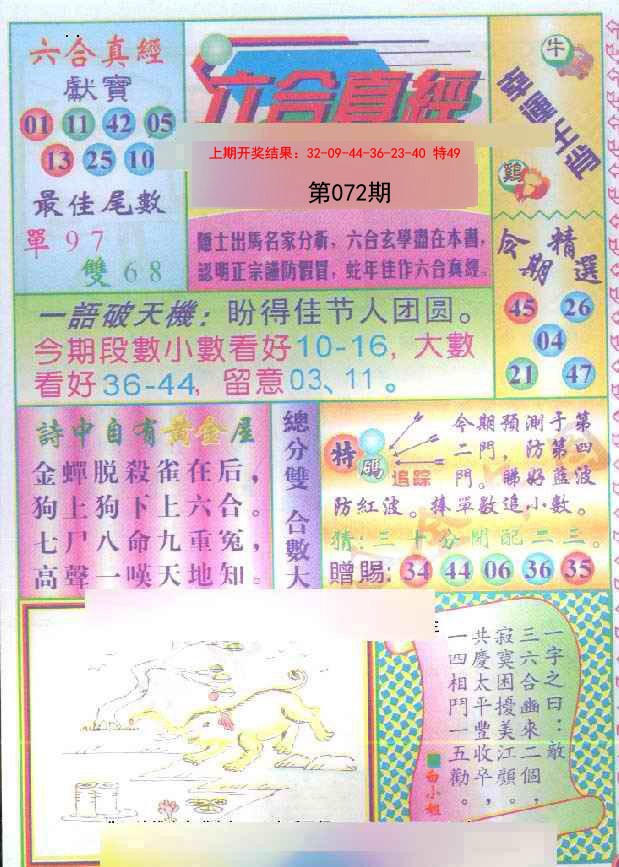 六合真經
獻寶
01 11 42 05
13 25 10
最佳尾數
單97
雙68
六合真經
上期开奖结果：32-09-44-36-23-40 特49
第072期
隱士出馬名家分析，六合玄學盡在本書，
認明正宗謹防假冒，蛇年佳作六合真經。
牛
鷄
今期精選
45 26
04
21 47
一語破天機：盼得佳节人团圆。
今期段數小數看好10-16，大數
看好36-44，留意03、11。
詩中自有黄金屋
金蟬脱殺雀在后，
狗上狗下上六合。
七尸八命九重冤，
高聲一嘆天地知。
總分雙 合數大
特碼
追踪
今期預測于第
二門，防第四
門。睇好藍波
防紅波。捧單數追小數。
猜：三十分開配二三。
贈賜：34 44 06 36 35
一字之曰：敢
三六合幽來二個，
寂寞困擾美江頭。
共慶太平豐收卒，
一四相鬥一五勸。
白小姐